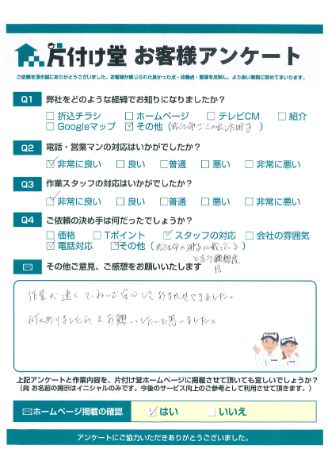 片付け堂 お客様アンケート
ご依頼を頂き誠にありがとうございました。お客様が感じられた良かった点・改善点・要望を反映し、より良い業務に努めてまいります。
Q1 弊社をどのような経緯でお知りになりましたか?
□折込チラシ □ホームページ □テレビCM □紹介
□Googleマップ ☑その他(
Q2 電話・営業マンの対応はいかがでしたか?
☑非常に良い □良い □普通 □悪い □非常に悪い
Q3 作業スタッフの対応はいかがでしたか?
☑非常に良い □良い □普通 □悪い □非常に悪い
Q4 ご依頼の決め手は何だったでしょうか?
□価格 □Tポイント ☑スタッフの対応 □会社の雰囲気
☑電話対応 ☑その他(
その他ご意見、ご感想をお願いいたします
作業が速くていねいで安心しておまかせできました。
何かありましたら又お願いしたいと思いました。
上記アンケートと作業内容を、片付け堂ホームページに掲載させて頂いても宜しいでしょうか?
(尚 お名前の掲示はイニシャルのみです。今後のサービス向上のご参考として利用させて頂きます。)
ホームページ掲載の確認 ☑はい □いいえ
アンケートにご協力いただきありがとうございました。